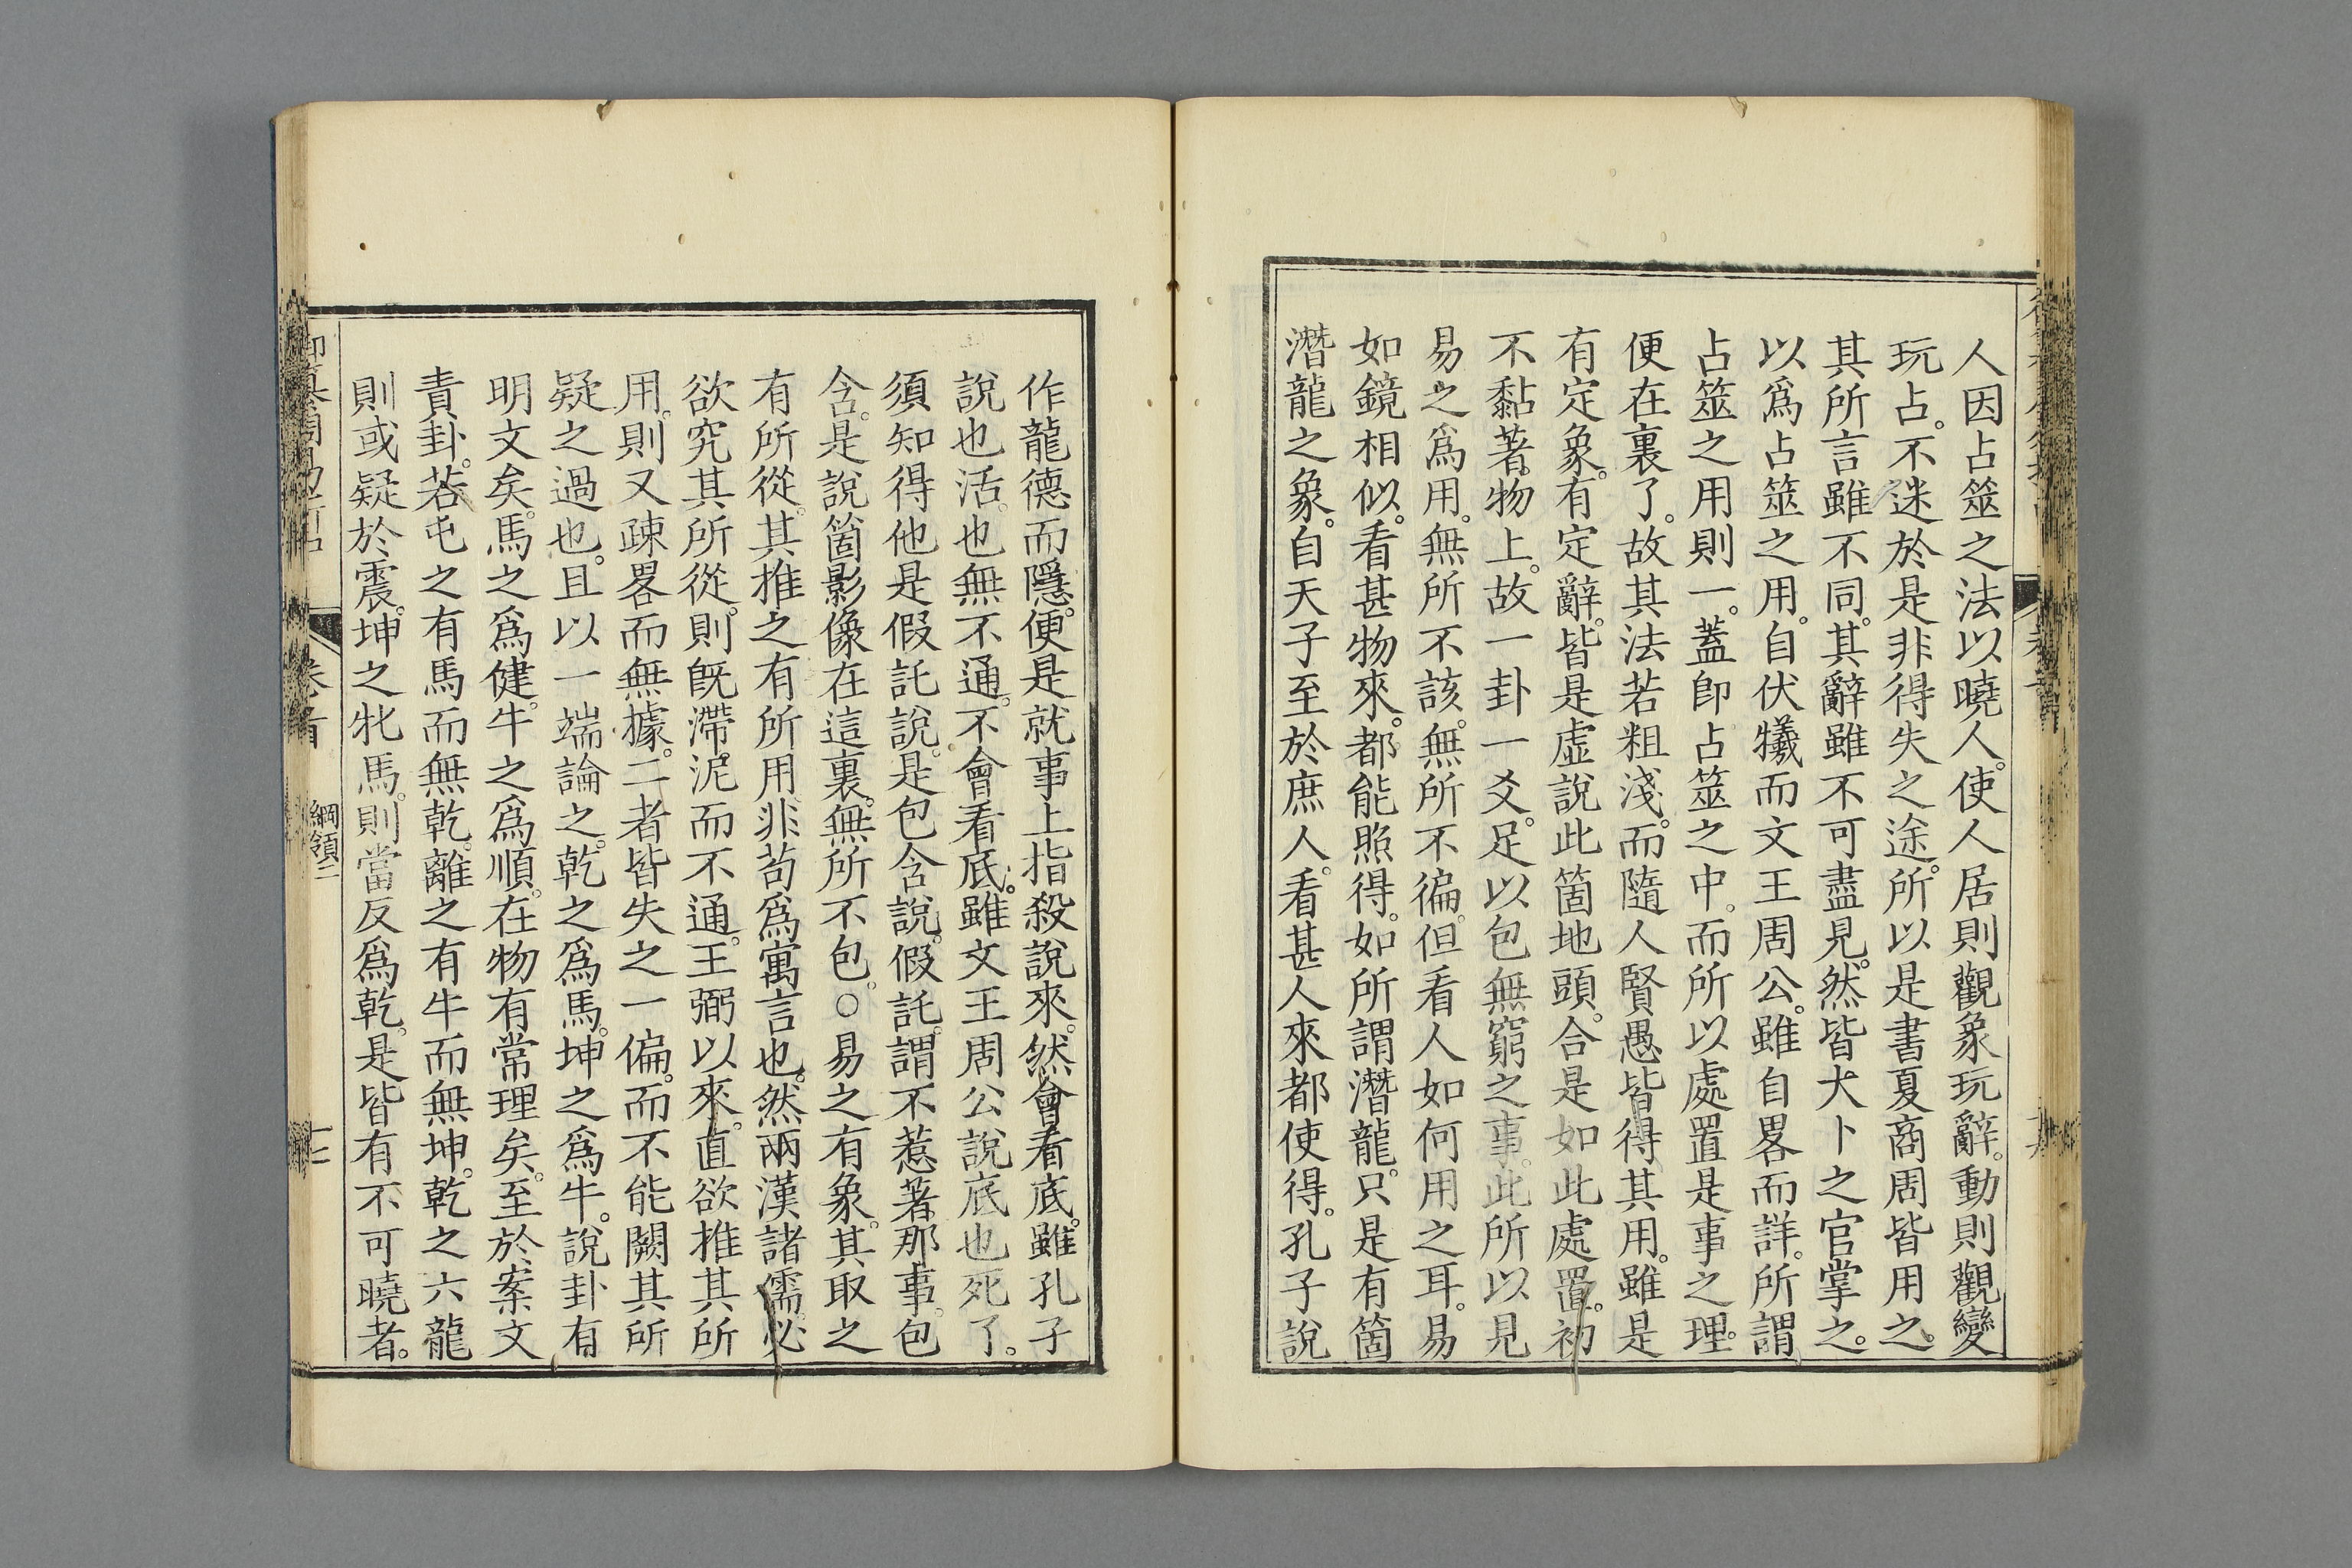 人因占筮之法以曉人。使人居則觀象玩辭。動則觀變
玩占。不迷於是非得失之途。所以是書夏商周皆用之。
其所言雖不同。其辭雖不可盡見。然皆犬卜之官掌之。
以爲占筮之用。自伏犧而文王周公。雖自畧而詳。所謂
占筮之用則一。蓋卽占筮之中。而所以處置是事之理。
便在裏了。故其法若粗淺。而隨人賢愚皆得其用。雖是
有定象。有定辭。皆是虛說此箇地頭。合是如此處置。初
不黏著物上。故一卦一爻。足以包無窮之事。此所以見
易之爲用。無所不該。無所不徧。但看人如何用之耳。易
如鏡相似。看甚物來。都能照得。如所謂潛龍。只是有箇
潛龍之象。自天子至於庶人。看甚人來都使得。孔子說
作龍德而隱。便是就事上指殺說來。然會看底。雖孔子
說也活。也無不通。不會看底。雖文王周公說底也死了。
須知得他是假託說。是包含說。假託。謂不惹著那事。包
含。是說箇影像在這裏。無所不包。○易之有象。其取之
有所從。其推之有所用。非苟爲寓言也。然兩漢諸儒。必
欲究其所從。則旣滯泥而不通。王弼以來。直欲推其所
用。則又疎畧而無據。二者皆失之一偏。而不能闕其所
疑之過也。且以一端論之。乾之爲馬。坤之爲牛。說卦有
明文矣。馬之爲健。牛之爲順。在物有常理矣。至於案文
責卦。若屯之有馬而無乾。離之有牛而無坤。乾之六龍
則或疑於震。坤之牝馬。則當反爲乾。是皆有不可曉者。
卷首
綱領二